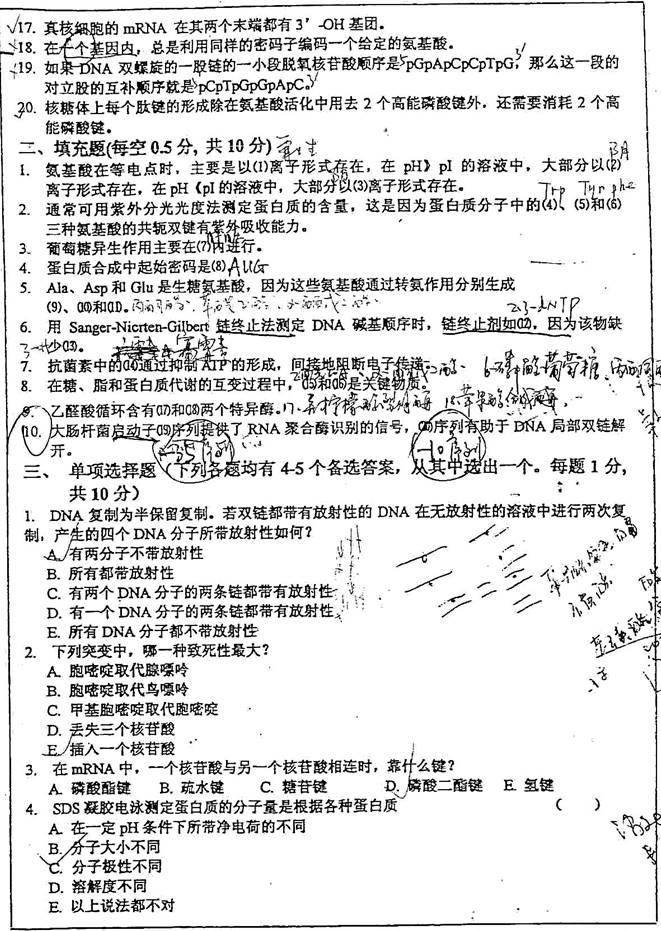 17. 真核细胞的 mRNA 在其两个末端都有3'-OH 基团。
18. 在一个基因内，总是利用同样的密码子编码一个给定的氨基酸。
19. 如果 DNA 双螺旋的一股链的一小段脱氧核苷酸顺序是 pGpApCpCpTpG，那么这一段的
对立股的互补顺序就是 pCpTpGpGpApC。
20. 核糖体上每个肽键的形成除在氨基酸活化中用去2个高能磷酸键外，还需要消耗2个高
能磷酸键。
二、填充题(每空0.5分, 共10分)
1. 氨基酸在等电点时，主要是以(1)离子形式存在，在 pH》pI 的溶液中，大部分以(2)
离子形式存在，在 pH《pI 的溶液中，大部分以(3)离子形式存在。
Trp Tyr phe
2. 通常可用紫外分光光度法测定蛋白质的含量，这是因为蛋白质分子中的(4)、(5)和(6)
三种氨基酸的共轭双键有紫外吸收能力。
3. 葡萄糖异生作用主要在(7)内进行。
4. 蛋白质合成中起始密码是(8) AUG
5. Ala、Asp 和 Glu 是生糖氨基酸，因为这些氨基酸通过转氨作用分别生成
(9)、(10)和(11)。
6. 用 Sanger-Nicrten-Gilbert 链终止法测定 DNA 碱基顺序时，链终止剂如(12)，因为该物缺
少(13)。
7. 抗菌素中的(14)通过抑制ATP的形成，间接地阻断电子传递。
8. 在糖、脂和蛋白质代谢的互变过程中，(15)和(16)是关键物质。
9. 乙醛酸循环含有(17)和(18)两个特异酶。
10. 大肠杆菌启动子(19)序列提供了 RNA 聚合酶识别的信号，(20)序列有助于 DNA 局部双链解
开。 -35序列 -10序列
三、 单项选择题（下列各题均有 4-5 个备选答案，从其中选出一个。每题 1 分,
共 10 分）
1. DNA 复制为半保留复制。若双链都带有放射性的 DNA 在无放射性的溶液中进行两次复
制，产生的四个 DNA 分子所带放射性如何?
A. 有两分子不带放射性
B. 所有都带放射性
C. 有两个 DNA 分子的两条链都带有放射性
D. 有一个 DNA 分子的两条链都带有放射性
E. 所有 DNA 分子都不带放射性
2. 下列突变中，哪一种致死性最大?
A. 胞嘧啶取代腺嘌呤
B. 胞嘧啶取代鸟嘌呤
C. 甲基胞嘧啶取代胞嘧啶
D. 丢失三个核苷酸
E. 插入一个核苷酸
3. 在 mRNA 中，一个核苷酸与另一个核苷酸相连时，靠什么键?
A. 磷酸酯键 B. 疏水键 C. 糖苷键 D. 磷酸二酯键 E. 氢键
4. SDS 凝胶电泳测定蛋白质的分子量是根据各种蛋白质 ( )
A. 在一定 pH 条件下所带净电荷的不同
B. 分子大小不同
C. 分子极性不同
D. 溶解度不同
E. 以上说法都不对